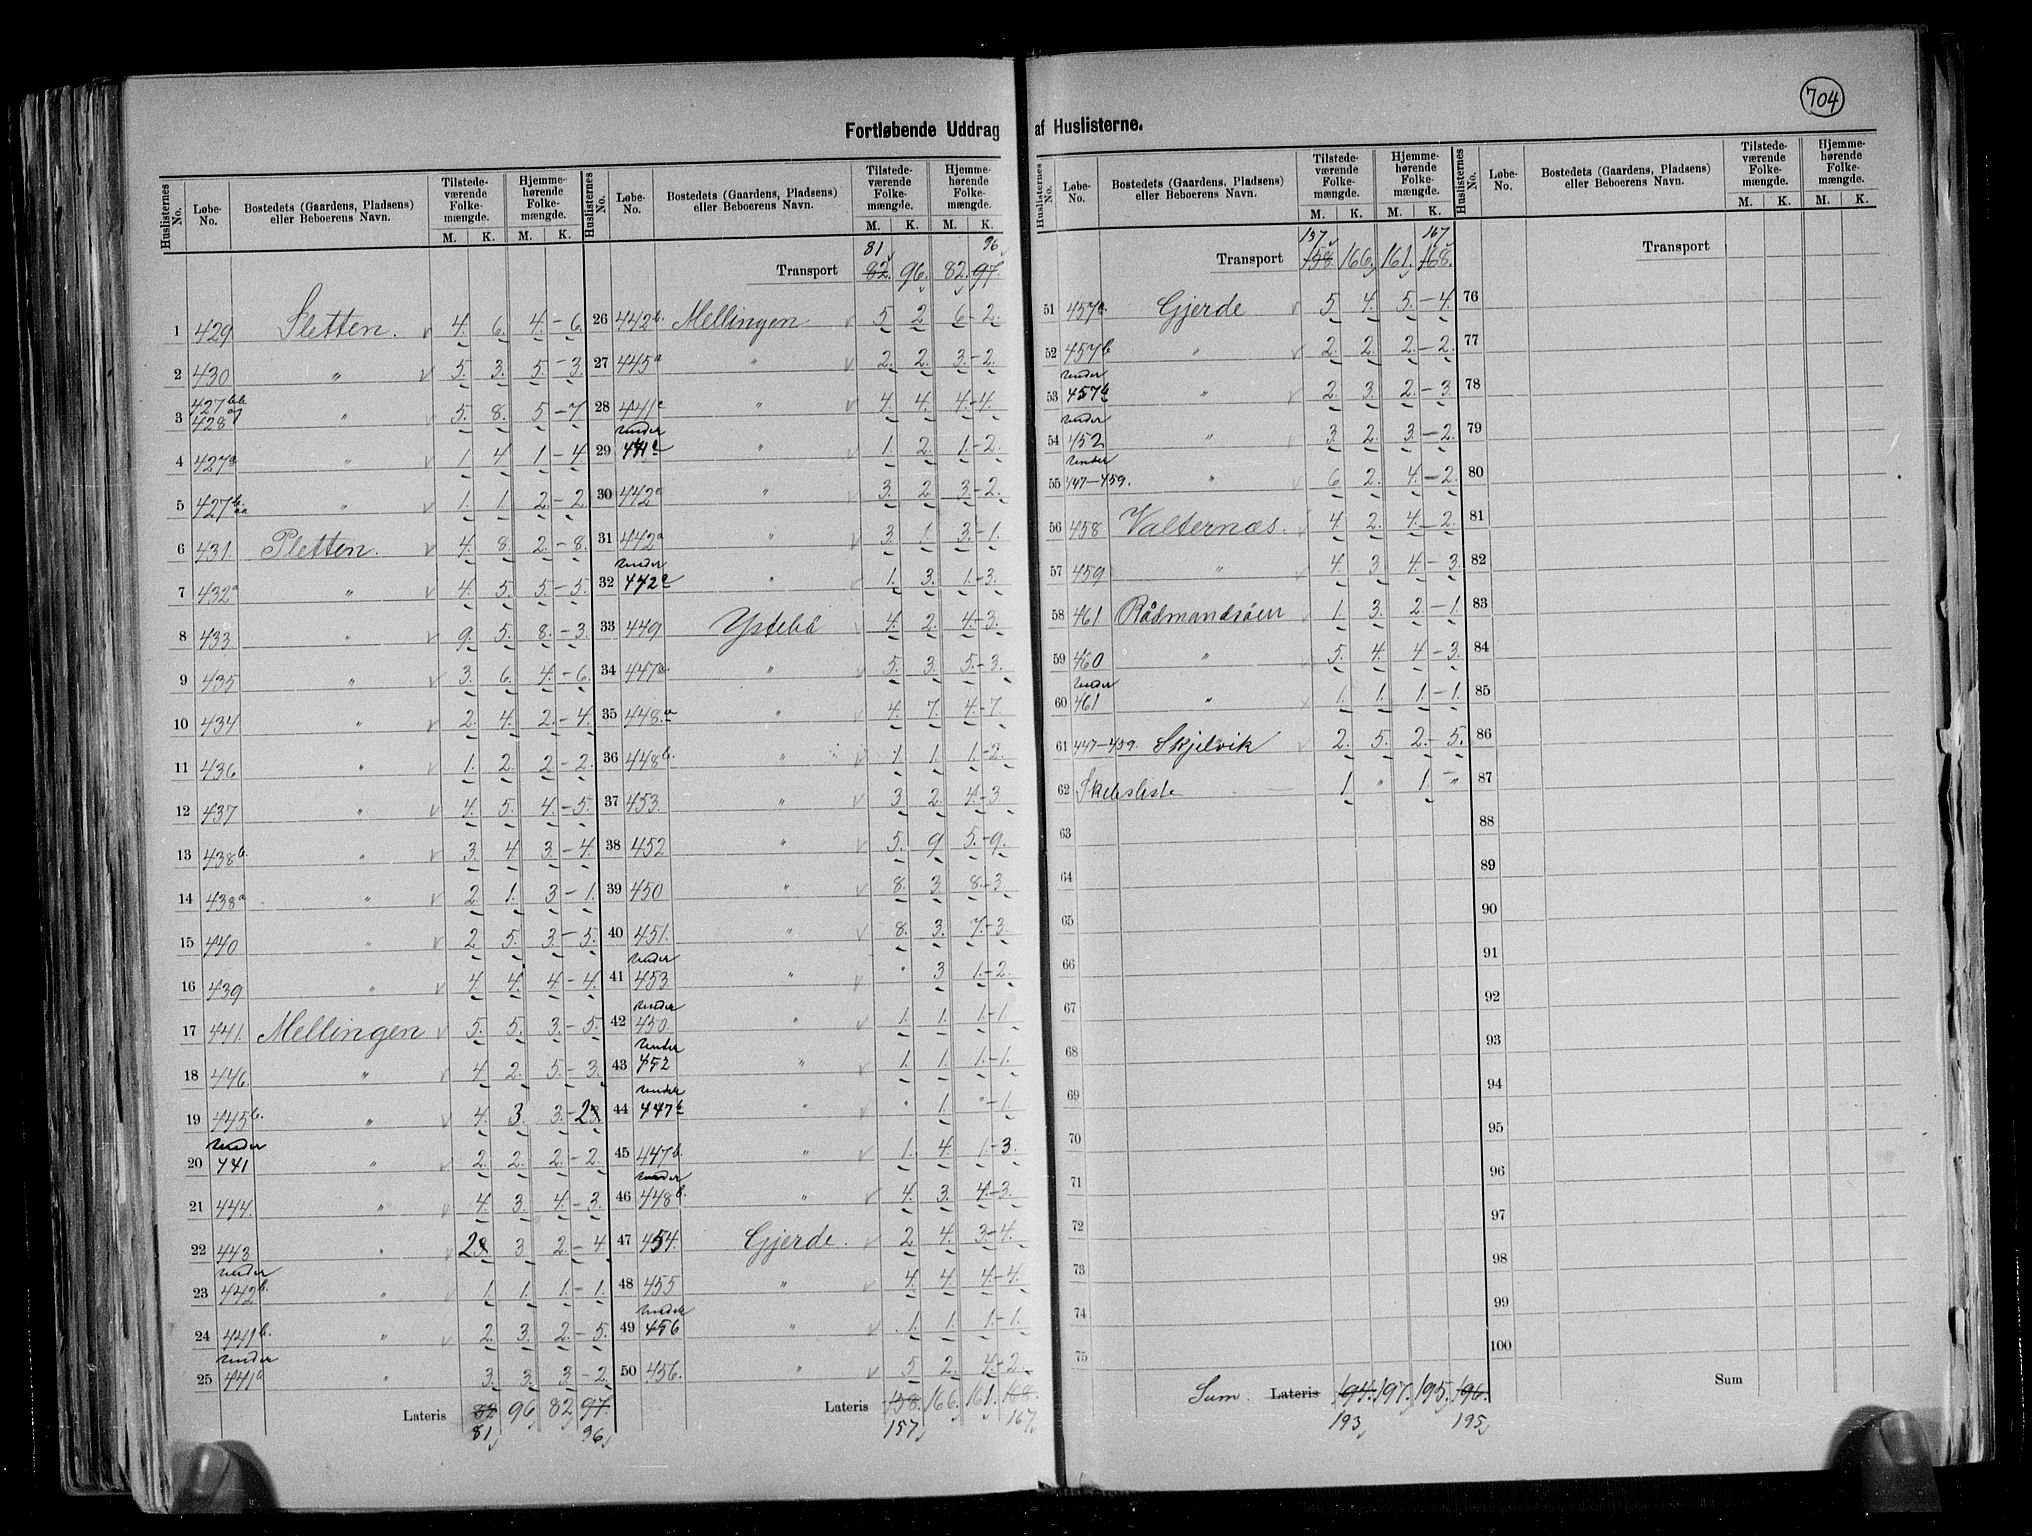 704
Fortløbende Uddrag af Huslisterne.
Huslisternes No. Løbe-No. Bostedets (Gaardens, Pladsens) eller Beboerens Navn. Tilstede-værende Folke-mængde. M. K. Hjemme-hørende Folke-mængde. M. K.
1 429 Sletten. v 4. 6. 4. - 6.
2 430 " v 5. 3. 5. - 3.
3 427bb og 428 " v 5. 8. 5. - 7.
4 427a " v 1. 4 1. - 4.
5 427b. aa " v 1. 1. 2. - 2.
6 431. Pletten. v 4. 8. 2. - 8.
7 432a " v 4. 5. 5. - 5.
8 433 " v 9. 5. 8. - 3.
9 435 " v 3. 6. 4. - 6.
10 434 " v 2. 4. 2. - 4.
11 436 " v 1. 2. 2. - 2.
12 437 " v 4. 5. 4. - 5.
13 438b. " v 3. 4 3. - 4.
14 438a " v 2. 1. 3 - 1.
15 440 " v 2. 5. 3. - 5.
16 439 " v 4. 4. 4. - 4.
17 441. Mellingen v 5. 5. 3. - 5.
18 446 " v 4. 2. 5. - 3.
19 445b. " v 4. 3. 3. - 2
20 under 441 " v 2. 2. 2. - 2.
21 444. " v 4. 3. 4. - 3.
22 443 " v 2 3 2. - 4.
23 under 442b. " 1. 1. 1. - 1.
24 441b. " v 2. 3. 2. - 5.
25 under 441b " 3. 3. 3 - 2.
Lateris 82 96 82 97.
81 96
Huslisternes No. Løbe-No. Bostedets (Gaardens, Pladsens) eller Beboerens Navn. Tilstede-værende Folke-mængde. M. K. Hjemme-hørende Folke-mængde. M. K.
81 96
Transport 82. 96. 82. 97.
26 442b. Mellingen v 5. 2 6. - 2.
27 445a " v 2. 2. 3. - 2.
28 441c " v 4. 4. 4. - 4.
29 under 441c " v 1. 2. 1. - 2.
30 442a " v 3. 2 3. - 2.
31 442a " v 3. 1. 3. - 1.
32 under 442a " v 1. 3. 1. - 3.
33 449 Ystebö v 4. 2. 4. - 3.
34 447a. " v 5. 3. 5. - 3.
35 448.a " v 4. 7. 4. - 7.
36 448b. " v 1. 1. 1. - 2.
37 453. " v 3 2. 4. - 3.
38 452 " v 5. 9 5. - 9.
39 450 " v 8. 3. 8. - 3
40 451. " v 8. 3. 7. - 3.
41 under 453 " v " 3 1. - 2.
42 under 450 " v 1. 1. 1. - 1.
43 under 452 " v 1. 1. 1. - 1.
44 under 447b " v " 1. " - 1.
45 447b. " v 1. 4. 1. - 3.
46 under 448b. " v 4. 3. 4. - 3.
47 454. Gjerde. v 2 4. 3. - 4.
48 455 " v 4. 4. 4. - 4.
49 under 456 " v 1. 1. 1. - 1.
50 456. " v 5 2. 4. - 2.
Lateris 158. 166. 161. 168.
157 167
Huslisternes No. Løbe-No. Bostedets (Gaardens, Pladsens) eller Beboerens Navn. Tilstede-værende Folke-mængde. M. K. Hjemme-hørende Folke-mængde. M. K.
157 167
Transport 158. 166. 161. 168.
51 457a. Gjerde v 5. 4. 5. - 4.
52 457b " v 2. 2. 2. - 2.
53 under 457b " v 2. 3. 2. - 3.
54 under 452 " v 3. 2. 3. - 2.
55 under 447-459. " v 6 2. 4. - 2.
56 458 Valternæs. v 4 2. 4. - 2.
57 459 " v 4. 3 4. - 3.
58 461 Rådmandsöen 1. 3. 2. - 1.
59 460 " 5. 4. 4 - 3.
60 under 461 " 1. 1. 1. - 1.
61 447-459. Skjelvik v 2. 5. 2. - 5.
62 Skibsliste 1 " 1. - "
63
64
65
66
67
68
69
70
71
72
73
74
75
Sum. Lateris 194. 197. 195. 196.
193 195
Huslisternes No. Løbe-No. Bostedets (Gaardens, Pladsens) eller Beboerens Navn. Tilstede-værende Folke-mængde. M. K. Hjemme-hørende Folke-mængde. M. K.
Transport
76
77
78
79
80
81
82
83
84
85
86
87
88
89
90
91
92
93
94
95
96
97
98
99
100
Sum